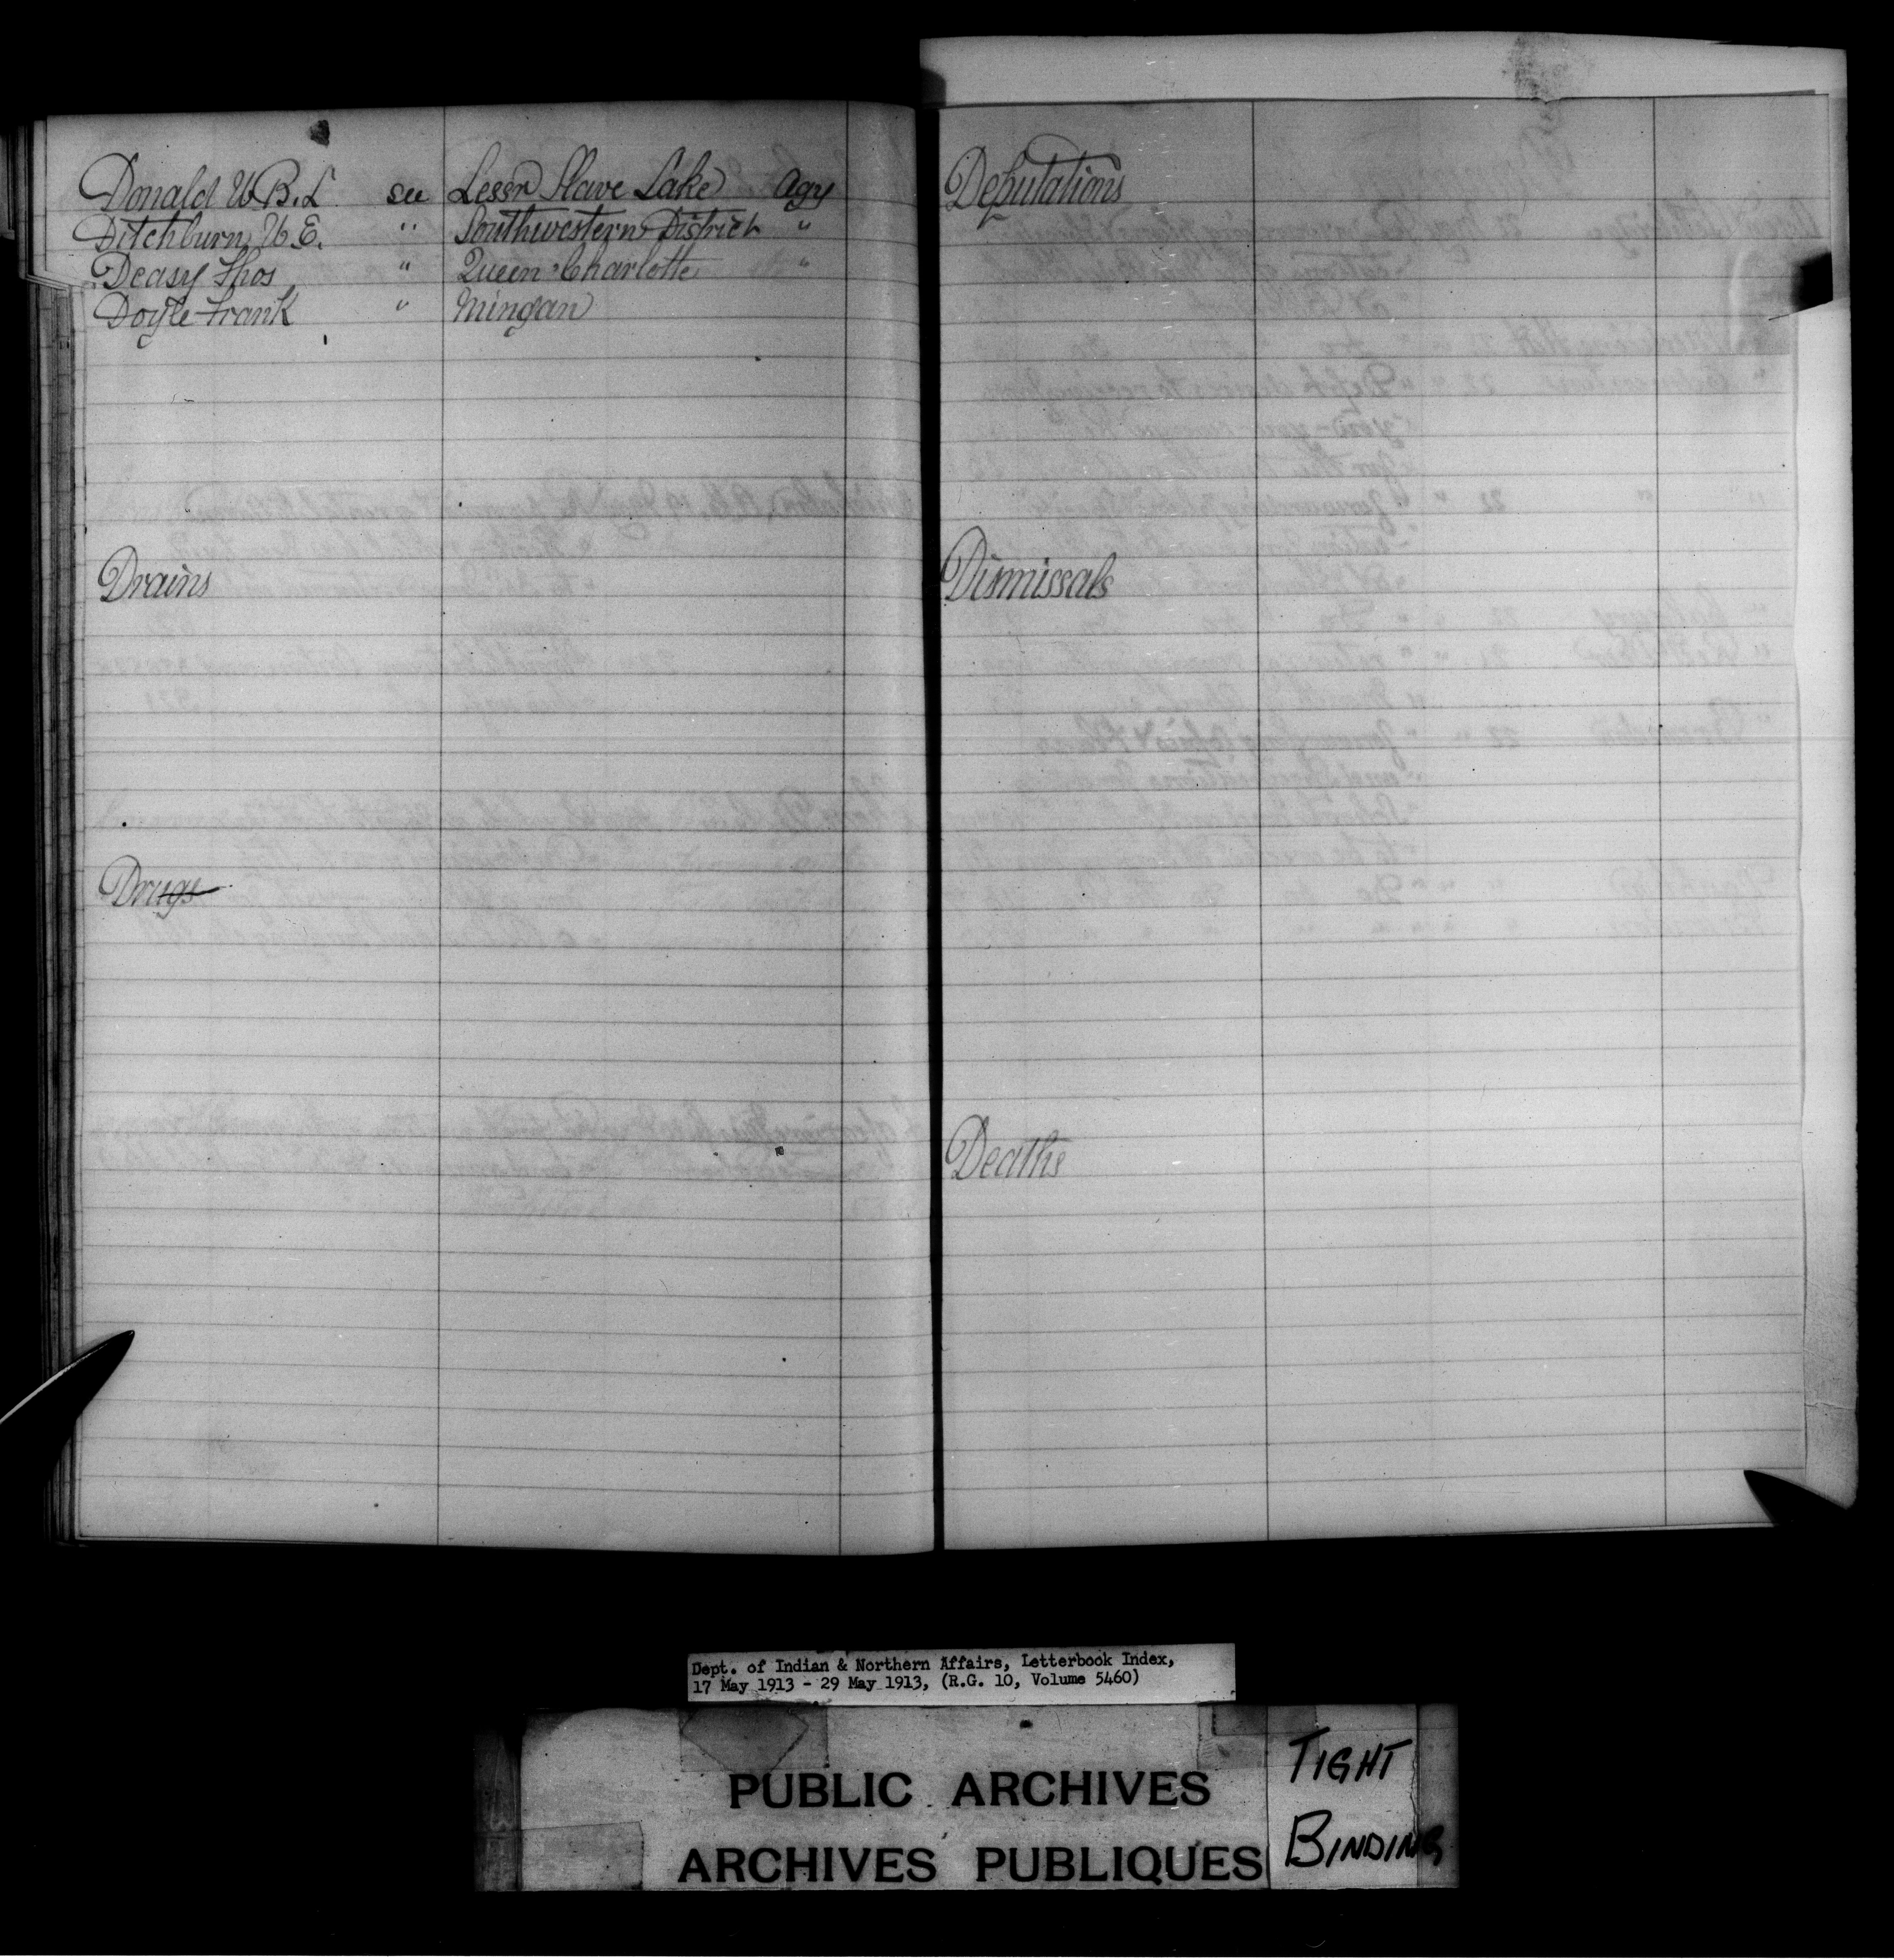 Donald W.B.L. see Lesser Slave Lake Agy
Ditchburn W.E. " Southwestern District "
Deasy Thos " Queen Charlotte "
Doyle Frank " Mingan
Drains
Drugs
Deputations
Dismissals
Deaths
Dept. of Indian & Northern Affairs, Letterbook Index,
17 May 1913 - 29 May 1913, (R.G. 10, Volume 5460)
PUBLIC ARCHIVES
ARCHIVES PUBLIQUES
TIGHT
BINDING